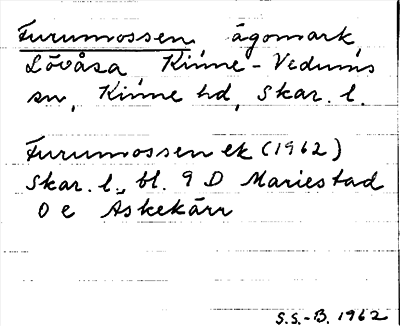 Furumossen, ägomark,
Lövåsa Kinne-Vedums
sn, Kinne hd, Skar. l.
Furumossen ek (1962)
Skar. l., bl. 9 D Mariestad
0 e Askekärr
S.S.-B. 1962